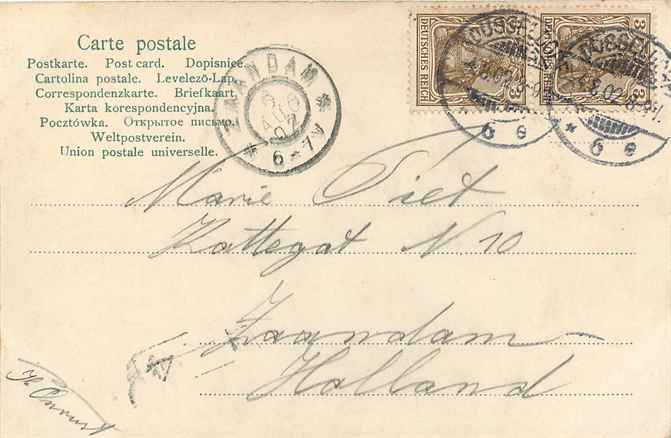 Carte postale
Postkarte. Post card. Dopisnice.
Cartolina postale. Levelező-Lap.
Correspondenzkarte. Briefkaart.
Karta korespondencyjna.
Pocztówka. Открытое письмо.
Weltpostverein.
Union postale universelle.
ZAANDAM
5 AUG 02
6-7V
DEUTSCHES REICH
3 3
DÜSSELDORF
4.8.02.8-9
6 e
DEUTSCHES REICH
3 3
DÜSSELDORF
4.8.02.8-9
6 e
Marie Piet
Kattegat N 10
Zaandam
Holland